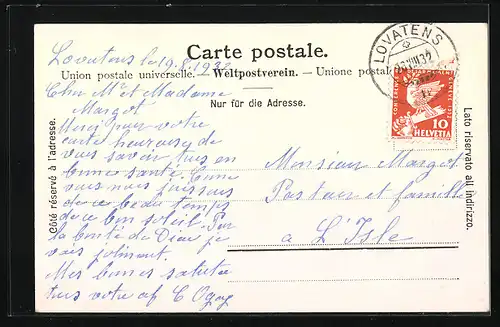 Carte postale.
Union postale universelle. — Weltpostverein. — Unione postale
Nur für die Adresse.
Côté réservé à l'adresse.
Lato riservato all indirizzo.
LOVATENS
10
HELVETIA
Lovatens le 19.8.1932
Chr Mr et Madame
Margot
Merci pour votre
carte heureux de
vous savoir tous en
bonne santé. Comme
vous nous jouissons
de ce beau temps
de ce bon soleil. Par
la bonté de Dieu je
vais
Mes bonnes
votre af C Ogay
Monsieur Margot
Pasteur et famille
à L'Isle